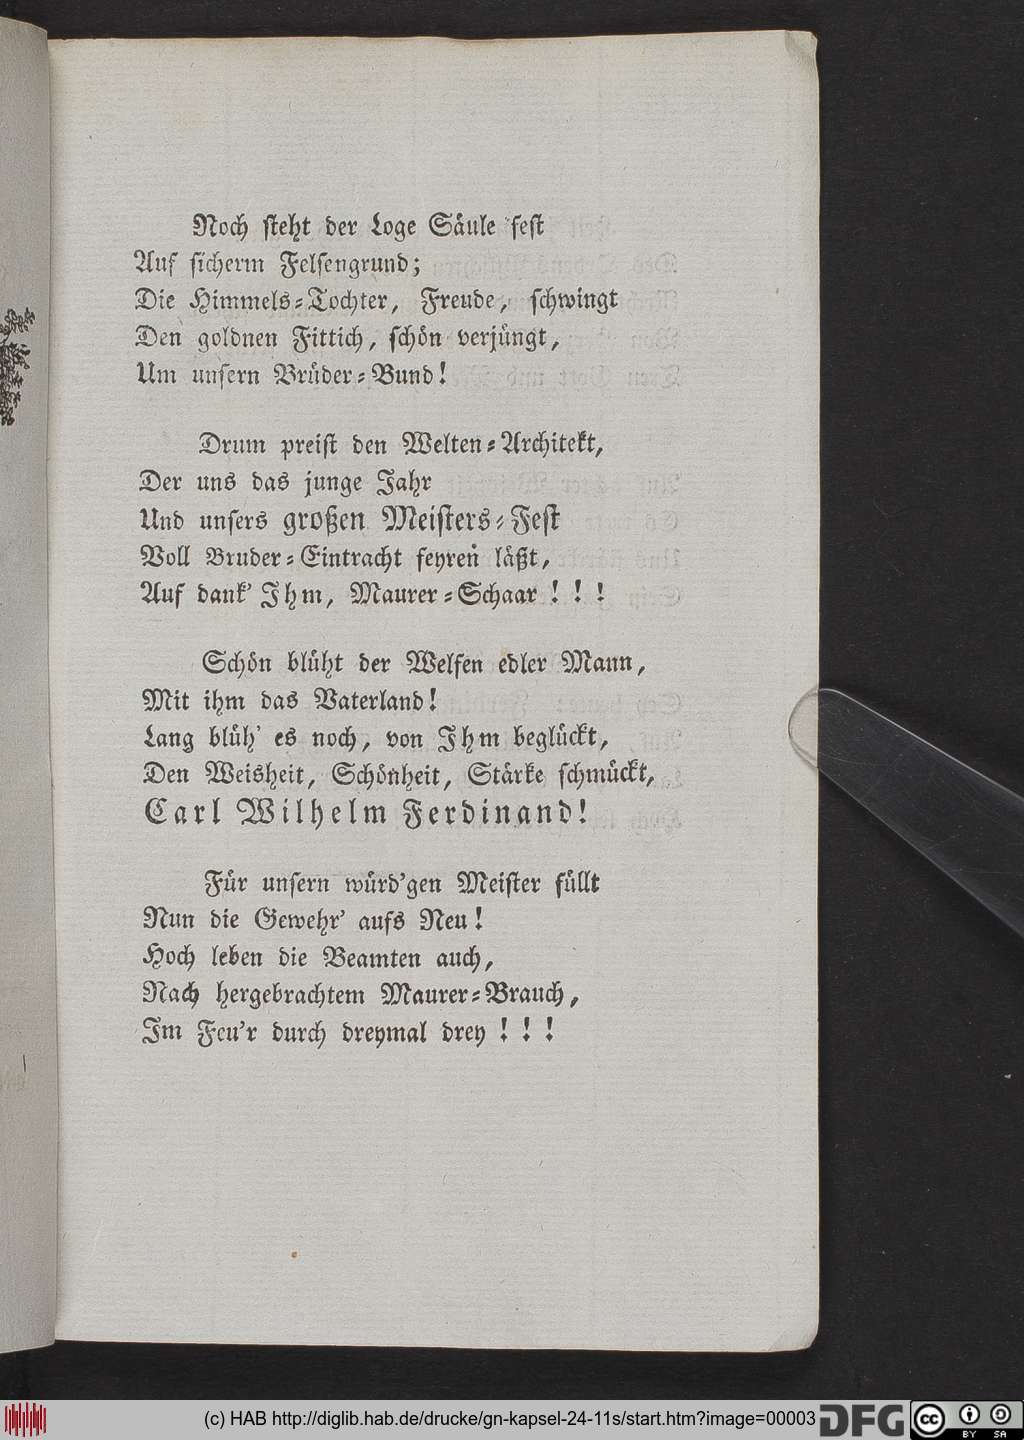 Noch steht der Loge Säule fest
Auf sicherm Felsengrund;
Die Himmels-Tochter, Freude, schwingt
Den goldnen Fittich, schön verjüngt,
Um unsern Brüder-Bund!
Drum preist den Welten-Architekt,
Der uns das junge Jahr
Und unsers großen Meisters-Fest
Voll Bruder-Eintracht feyren läßt,
Auf dank' Ihm, Maurer-Schaar ! ! !
Schön blüht der Welfen edler Mann,
Mit ihm das Vaterland!
Lang blüh' es noch, von Ihm beglückt,
Den Weisheit, Schönheit, Stärke schmückt,
Carl Wilhelm Ferdinand!
Für unsern würd'gen Meister füllt
Nun die Gewehr' aufs Neu!
Hoch leben die Beamten auch,
Nach hergebrachtem Maurer-Brauch,
Im Feu'r durch dreymal drey ! ! !
(c) HAB http://diglib.hab.de/drucke/gn-kapsel-24-11s/start.htm?image=00003
DFG
cc
BY SA